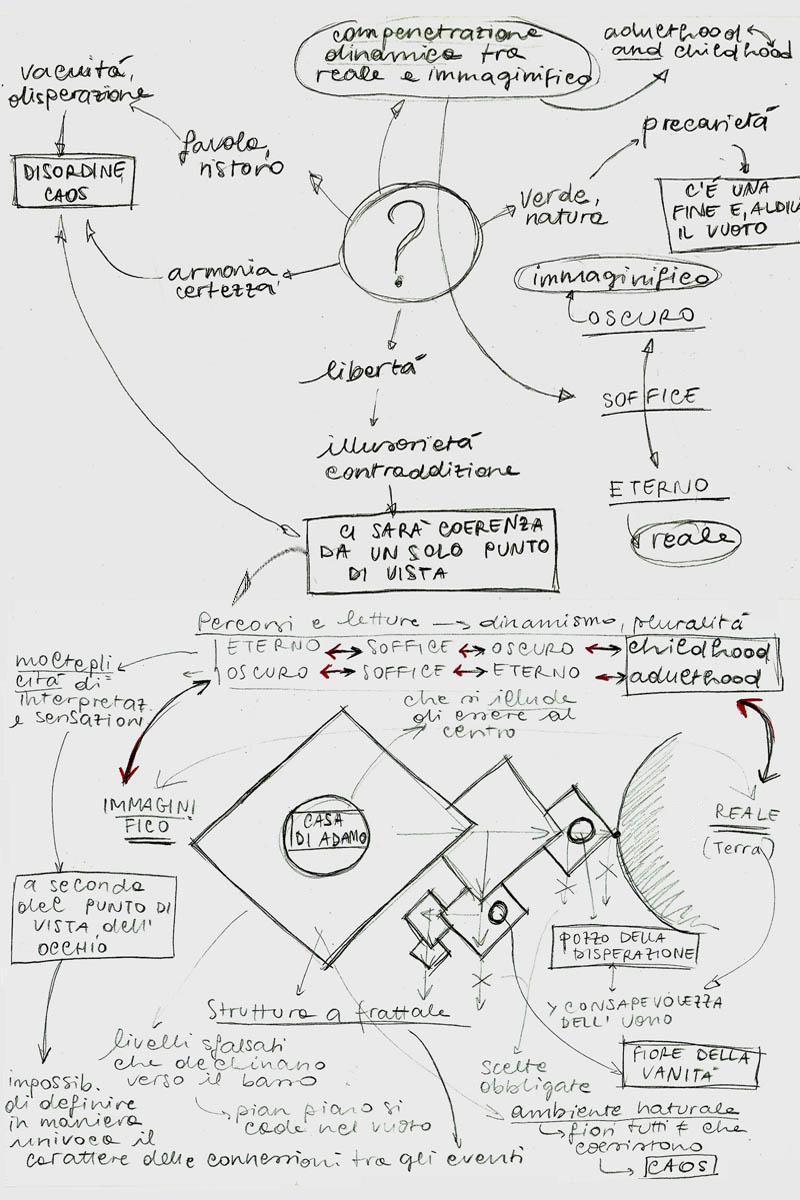 compenetrazione
dinamica tra
reale e immaginifico
adulthood
and childhood
vacuità,
disperazione
favola,
ristoro
precarietà
DISORDINE
CAOS
?
verde,
natura
C'È UNA
FINE E, ALDILÀ
IL VUOTO
armonia
certezza
immaginifico
OSCURO
libertà
SOFFICE
illusorietà
contraddizione
ETERNO
reale
CI SARÀ COERENZA
DA UN SOLO PUNTO
DI VISTA
Percorsi e letture → dinamismo, pluralità
ETERNO ↔ SOFFICE ↔ OSCURO ↔ childhood
OSCURO ↔ SOFFICE ↔ ETERNO ↔ adulthood
moltepli
cità di
interpretaz.
e sensazioni
che si illude
di essere al
centro
IMMAGINI
FICO
CASA
DI ADAMO
REALE
(Terra)
a seconda
del PUNTO DI
VISTA dell'
OCCHIO
POZZO DELLA
DISPERAZIONE
Struttura a frattale
CONSAPEVOLEZZA
DELL' UOMO
livelli sfalsati
che declinano
verso il basso
FIORE DELLA
VANITÀ
scelte
obbligate
pian piano si
cade nel vuoto
ambiente naturale
fiori tutti ≠ che
coesistono
CAOS
impossib.
di definire
in maniera
univoca il
carattere delle connessioni tra gli eventi